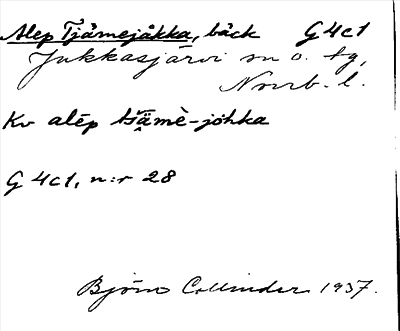 Alep Tjåmejåkka, bäck G4c1
Jukkasjärvi sn o. tg,
Norrb. l.
Kv alēp tšāmè-jòhka
G 4c1, n:r 28
Björn Collinder 1937.